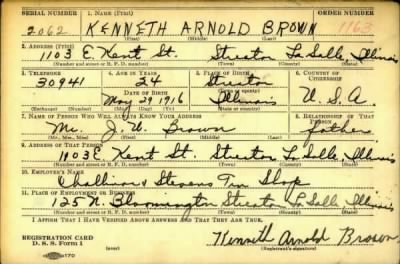 SERIAL NUMBER 1. NAME (Print) ORDER NUMBER
2062 KENNETH ARNOLD BROWN 1163
(First) (Middle) (Last)
2. ADDRESS (Print)
1103 E. Kent St. Streator La Salle Illinois
(Number and street or R. F. D. number) (Town) (County) (State)
3. TELEPHONE 4. AGE IN YEARS 5. PLACE OF BIRTH 6. COUNTRY OF CITIZENSHIP
30941 24 Streator
DATE OF BIRTH (Town or county)
May 29 1916 Illinois U.S.A.
(Exchange) (Number) (Mo.) (Day) (Yr.) (State or country)
7. NAME OF PERSON WHO WILL ALWAYS KNOW YOUR ADDRESS 8. RELATIONSHIP OF THAT PERSON
Mr. J. W. Brown father
(Mr., Mrs., Miss) (First) (Middle) (Last)
9. ADDRESS OF THAT PERSON
1103 E Kent St. Streator La Salle Illinois
(Number and street or R. F. D. number) (Town) (County) (State)
10. EMPLOYER'S NAME
Stevens Tin Shop
11. PLACE OF EMPLOYMENT OR BUSINESS
125 N. Bloomington Streator La Salle Illinois
(Number and street or R. F. D. number) (Town) (County) (State)
I AFFIRM THAT I HAVE VERIFIED ABOVE ANSWERS AND THAT THEY ARE TRUE.
REGISTRATION CARD
D. S. S. Form 1 Kenneth Arnold Brown
(Registrant's signature)